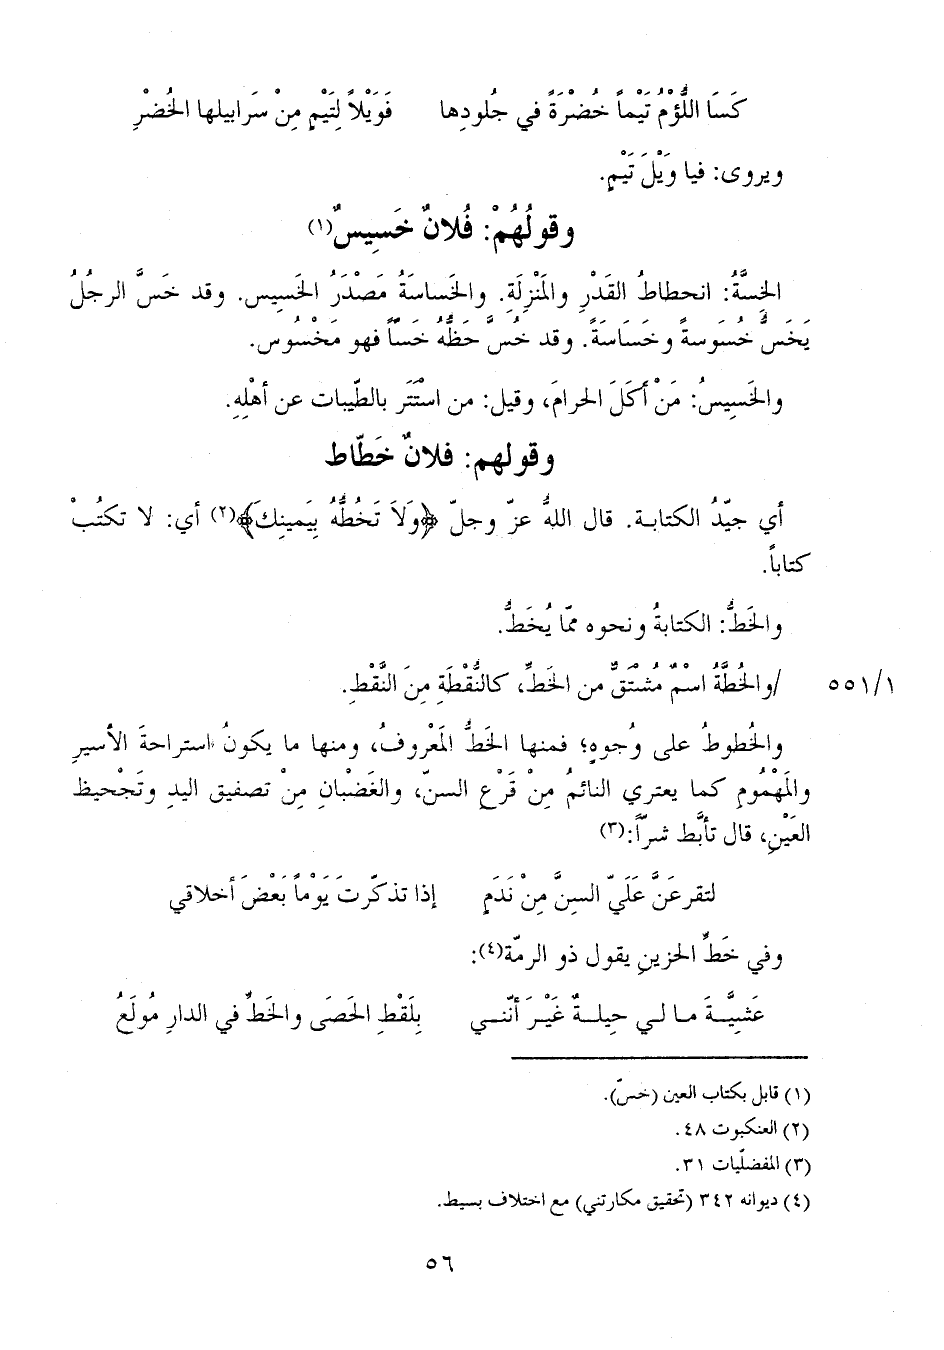 كَسَا اللُّؤْمُ تَيْماً خُضْرَةً في جُلودِها فَوَيْلاً لِتَيْمٍ مِنْ سَرابيلها الخُضْرِ
ويروى: فيا وَيْلَ تَيْمٍ.
وقولُهُمْ: فُلانٌ خَسِيسٌ(١)
الخِسَّةُ: انحطاطُ القَدْرِ والمَنْزِلَةِ. والخَساسَةُ مَصْدَرُ الخَسِيس. وقد خَسَّ الرجُلُ
يَخَسُّ خُسُوسةً وخَسَاسَةً. وقد خُسَّ حَظُّهُ خَسّاً فهو مَخْسُوس.
والخَسِيسُ: مَنْ أَكَلَ الحرامَ، وقيل: من استَتَر بالطّيبات عن أهْلِهِ.
وقولهم: فلانٌ خَطّاط
أي جيّدُ الكتابة. قال اللهُ عزّ وجلّ ﴿وَلَا تَخُطُّهُ بِيَمينِكَ﴾(٢) أي: لا تكتُبْ
كتاباً.
والخَطُّ: الكتابةُ ونحوه ممّا يُخَطُّ.
١/٥٥١ /والخُطَّةُ اسْمٌ مُشْتَقٌّ من الخَطِّ، كالنُّقْطَةِ مِنَ النَّقْطِ.
والخُطوطُ على وُجوهٍ؛ فمنها الخَطُّ المَعْروفُ، ومنها ما يكونُ استراحةَ الأسيرِ
والمَهْمُومِ كما يعتري النائمُ مِنْ قَرْعِ السنّ، والغَضْبانِ مِنْ تصفيق اليدِ وتَجْحيظ
العَيْنِ، قال تأبَّط شرّاً:(٣)
لتقرعَنَّ عَلَيّ السِنَّ مِنْ نَدَمٍ إذا تذكّرتَ يَوْماً بَعْضَ أخلاقي
وفي خَطِّ الحزينِ يقول ذو الرمّة(٤):
عَشِيَّةَ ما لي حِيلةٌ غَيْرَ أنّني بِلَقْطِ الحَصَى والخَطِّ في الدارِ مُولَعُ
(١) قابل بكتاب العين (خسّ).
(٢) العنكبوت ٤٨.
(٣) المفضلّيات ٣١.
(٤) ديوانه ٣٤٢ (تحقيق مكارتني) مع اختلاف بسيط.
٥٦